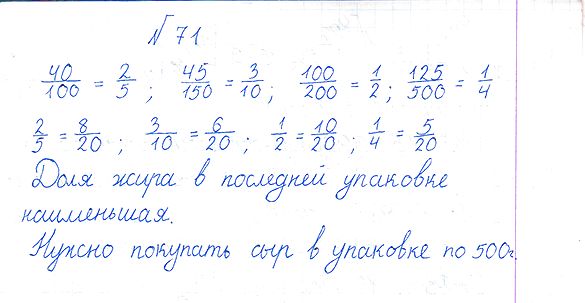 № 71
40/100 = 2/5 ; 45/150 = 3/10 ; 100/200 = 1/2 ; 125/500 = 1/4
2/5 = 8/20 ; 3/10 = 6/20 ; 1/2 = 10/20 ; 1/4 = 5/20
Доля жира в последней упаковке
наименьшая.
Нужно покупать сыр в упаковке по 500г.